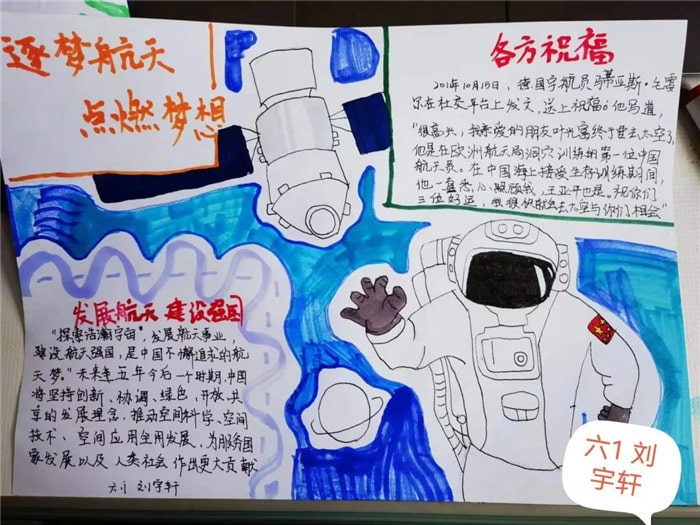 逐梦航天
点燃梦想
各方祝福
德国宇航员马蒂亚斯·毛雷
尔在社交平台上发文，送上祝福。他写道，
"很高兴，我亲爱的朋友叶光富终于要去太空了，
他是在欧洲航天局洞穴训练的第一位中国
航天员。在中国海上接受生存训练期间，
他一直悉心照顾我，王亚平也是。祝你们
三位好运，我很快就会去太空与你们相会"
发展航天 建设强国
"探索浩瀚宇宙，发展航天事业，
建设航天强国，是中国不懈追求的航
天梦。"未来五年今后一个时期，中国
将坚持创新、协调、绿色、开放、共
享的发展理念，推动空间科学、空间
技术、空间应用全用发展、为服务国
家发展以及人类社会作出更大贡献
六1 刘宇轩
六1 刘
宇轩